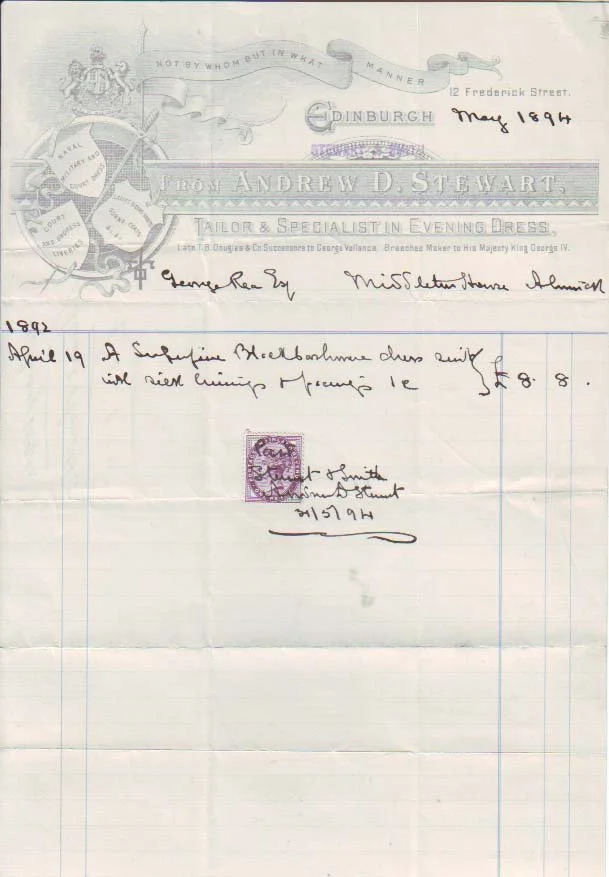 NOT BY WHOM BUT IN WHAT MANNER
12 Frederick Street.
EDINBURGH May 1894
STEWART & SMITH
FROM ANDREW D. STEWART,
TAILOR & SPECIALIST IN EVENING DRESS,
Late T.B. Douglas & Co. Successors to George Vallance. Breeches Maker to His Majesty King George IV.
NAVAL
MILITARY AND
COURT DRESS
COURT
AND DRESS
LIVERIES
To George Rea Esq Middleton House Alnwick
1892
April 19 A Superfine Black Cashmere dress suit
with silk linings & facings £8. 8.
Paid
Stewart & Smith
Andrew D Stewart
31/5/94